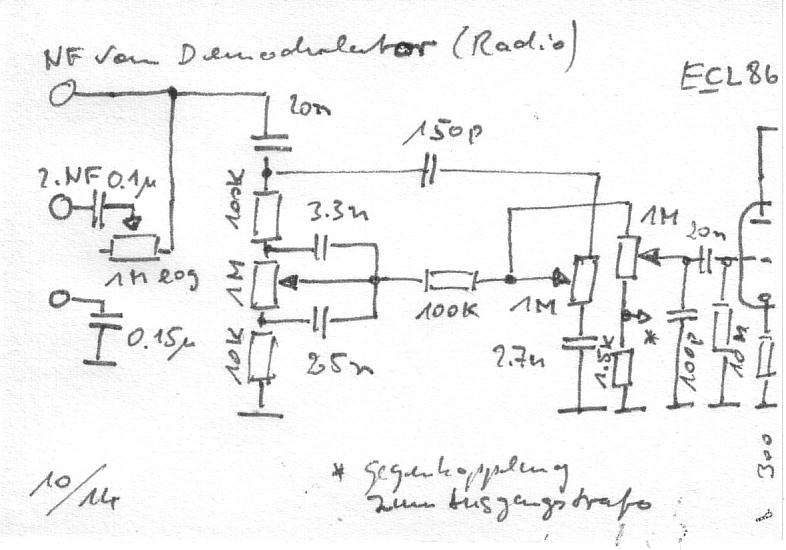 NF vom Demodulator (Radio)
ECL86
20n
150p
2.NF 0.1µ
100K
3.3n
1M
20n
1M log
1M
100K
1M
0.15µ
10K
25n
2.7n
1.5K
*
100p
10M
300
10/14
* Gegenkopplung
zum Ausgangstrafo